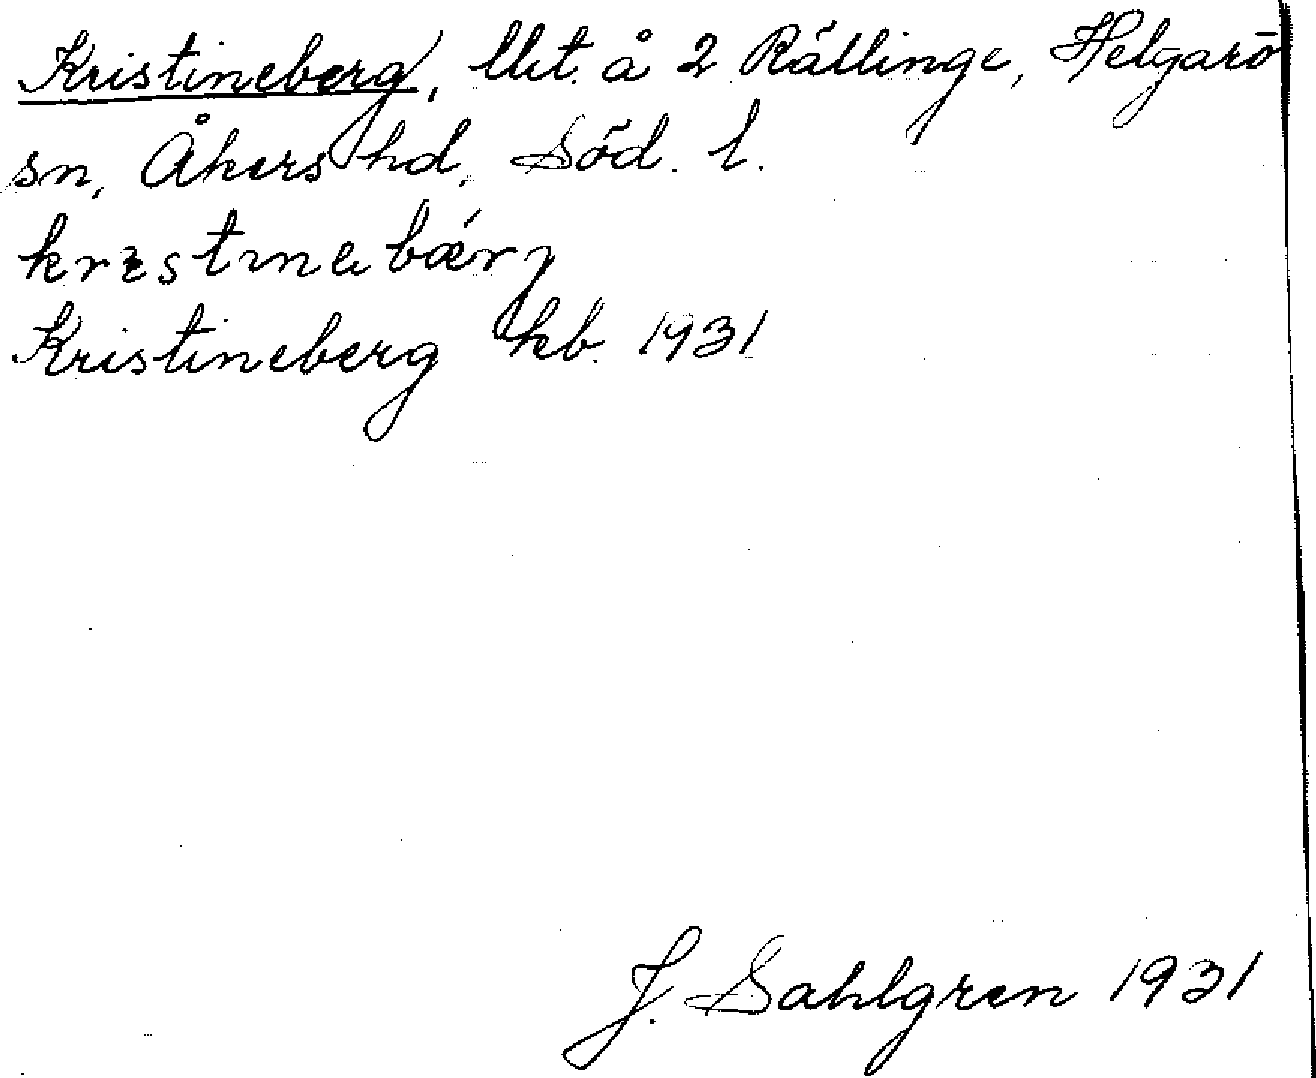 Kristineberg, lht. å 2 Rällinge, Helgarö
sn, Åkers hd, Söd. l.
Kristineberg kb. 1931
J. Sahlgren 1931